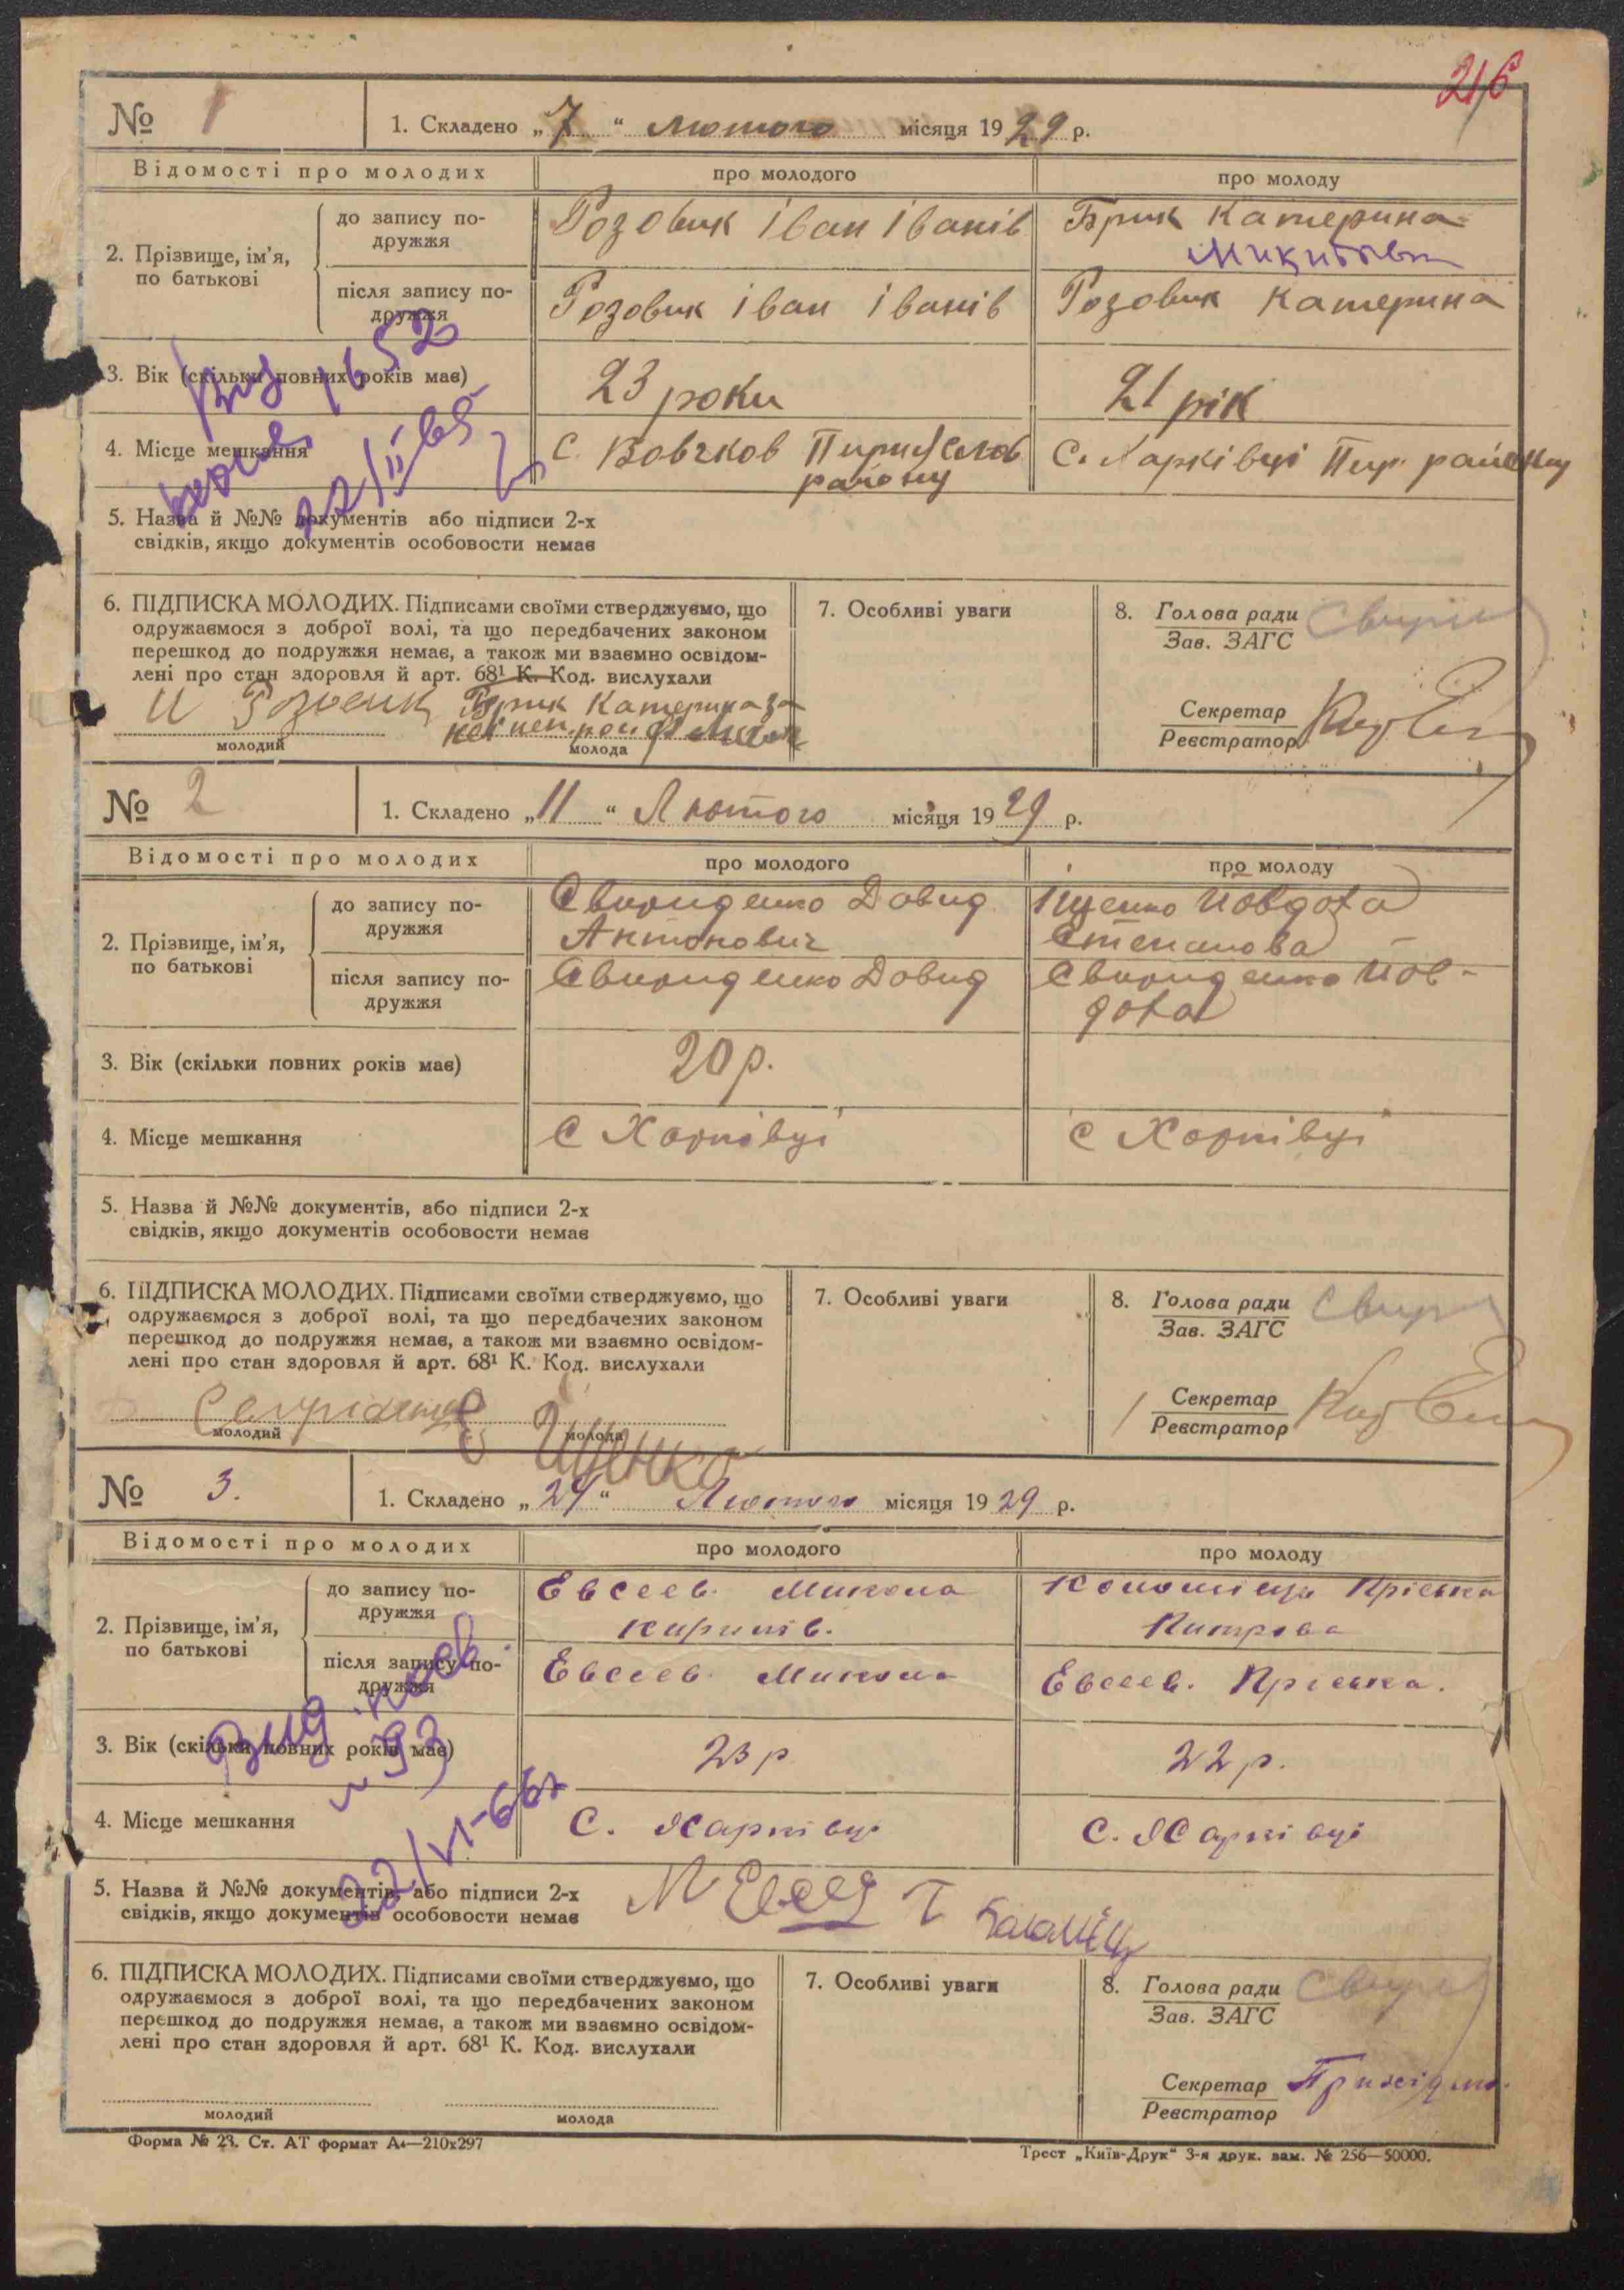 216
№ 1
1. Складено „7“ Лютого місяця 1929 р.
Відомості про молодих
про молодого
про молоду
2. Прізвище, ім’я, по батькові
до запису по-
дружжя
Розовик Іван Іванів
Брик Катерина
після запису по-
дружжя
Розовик Іван Іванів
Розовик Катерина
3. Вік (скільки повних років має)
23 роки
21 рік
4. Місце мешкання
С. Вовчков
району
С. Харківці Пир. району
1652
22/II 65
5. Назва й №№ документів або підписи 2-х
свідків, якщо документів особовости немає
6. ПІДПИСКА МОЛОДИХ. Підписами своїми стверджуємо, що
одружаємося з доброї волі, та що передбачених законом
перешкод до подружжя немає, а також ми взаємно освідом-
лені про стан здоровля й арт. 68¹ К. Код. вислухали
И Розовик Брик Катерина за
молодий
молода
7. Особливі уваги
8. Голова ради
Зав. ЗАГС
Секретар
Реєстратор
№ 2
1. Складено „11“ Лютого місяця 1929 р.
Відомості про молодих
про молодого
про молоду
2. Прізвище, ім’я,
по батькові
до запису по-
дружжя
Свириденко Давид
Антонович
Іщенко Йовдоха
Степанова
після запису по-
дружжя
Свириденко Давид
Свириденко Йов-
доха
3. Вік (скільки повних років має)
20 р.
4. Місце мешкання
С Харківці
С Харківці
5. Назва й №№ документів, або підписи 2-х
свідків, якщо документів особовости немає
6. ПІДПИСКА МОЛОДИХ. Підписами своїми стверджуємо, що
одружаємося з доброї волі, та що передбачених законом
перешкод до подружжя немає, а також ми взаємно освідом-
лені про стан здоровля й арт. 68¹ К. Код. вислухали
Є Іщенко
молодий
молода
7. Особливі уваги
8. Голова ради
Зав. ЗАГС
Секретар
Реєстратор
№ 3.
1. Складено „24“ Лютого місяця 1929 р.
Відомості про молодих
про молодого
про молоду
2. Прізвище, ім’я,
по батькові
до запису по-
дружжя
Евсеев Микола
Кирилів.
Коломієць Пріська
Питрова
після запису по-
дружжя
Евсеев Микола
Евсеев. Пріська.
3. Вік (скільки повних років має)
23 р.
22 р.
4. Місце мешкання
С. Харківці
С. Харківці
№ 93
22/VI-66г
5. Назва й №№ документів, або підписи 2-х
свідків, якщо документів особовости немає
6. ПІДПИСКА МОЛОДИХ. Підписами своїми стверджуємо, що
одружаємося з доброї волі, та що передбачених законом
перешкод до подружжя немає, а також ми взаємно освідом-
лені про стан здоровля й арт. 68¹ К. Код. вислухали
молодий
молода
7. Особливі уваги
8. Голова ради
Зав. ЗАГС
Секретар
Реєстратор
Форма № 23. Ст. АТ формат А₄—210х297
Трест „Київ-Друк“ 3-я друк. зам. № 256—50000.